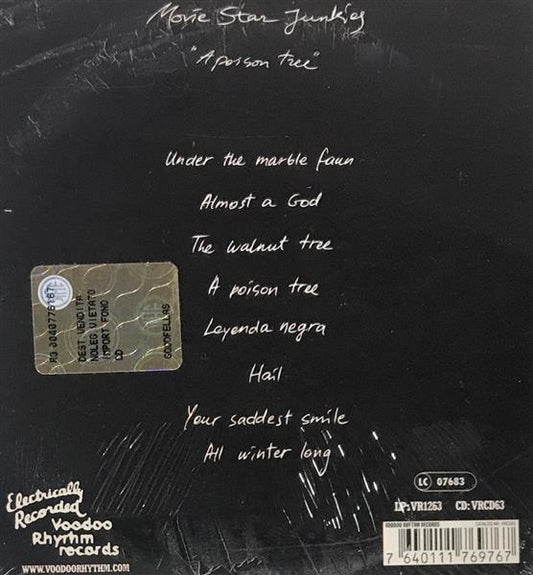 Movie Star Junkies
"A poison tree"
Under the marble faun
Almost a God
The walnut tree
A poison tree
Leyenda negra
Hail
Your saddest smile
All winter long
DEST. VENDITA
NOLEG VIETATO
IMPORT FONO
CD
GOODFELLAS
LC 07683
LP:VR1263 CD:VRCD63
VOODOO RHYTHM RECORDS
7 640111 769767
Electrically
Recorded
Voodoo
Rhythm
records
WWW.VOODOORHYTHM.COM